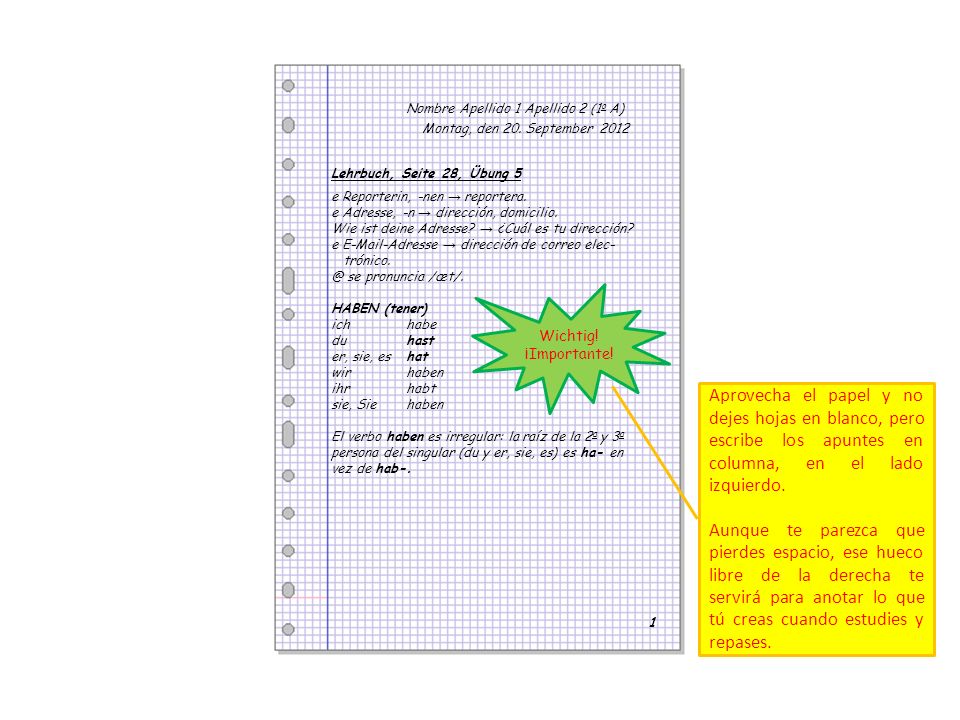 Nombre Apellido 1 Apellido 2 (1º A)
Montag, den 20. September 2012
Lehrbuch, Seite 28, Übung 5
e Reporterin, -nen → reportera.
e Adresse, -n → dirección, domicilio.
Wie ist deine Adresse? → ¿Cuál es tu dirección?
e E-Mail-Adresse → dirección de correo elec-
trónico.
@ se pronuncia /æt/.
HABEN (tener)
ich habe
du hast
er, sie, es hat
wir haben
ihr habt
sie, Sie haben
El verbo haben es irregular: la raíz de la 2ª y 3ª
persona del singular (du y er, sie, es) es ha- en
vez de hab-.
1
Wichtig!
¡Importante!
Aprovecha el papel y no
dejes hojas en blanco, pero
escribe los apuntes en
columna, en el lado
izquierdo.
Aunque te parezca que
pierdes espacio, ese hueco
libre de la derecha te
servirá para anotar lo que
tú creas cuando estudies y
repases.